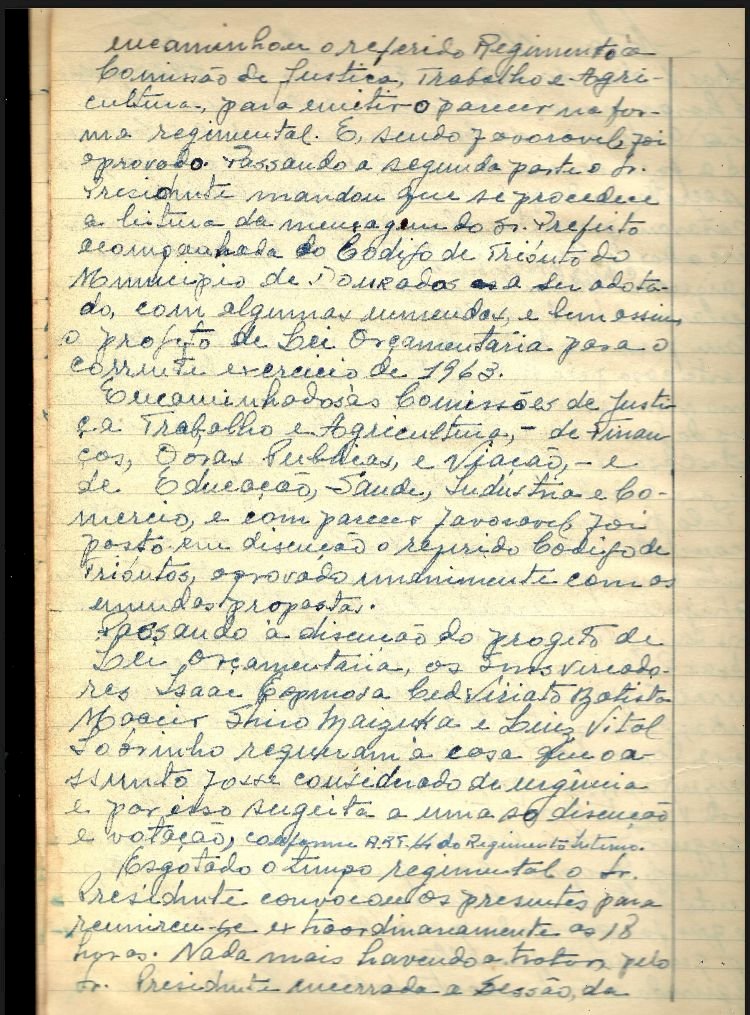 encaminhou o referido Regimento à
Comissão de Justica, Trabalho e Agri-
cultura, para emitir o parecer na for-
ma regimental. E, sendo favoravel, foi
aprovado. Passando a segunda parte o Sr.
Presidente mandou que se procedece
a leitura da mençagem do Sr. Prefeito
acompanhada do Codigo de Tributo do
Municipio de Dourados a ser adota-
do, com algumas emendas, e bem assim,
o projeto de Lei Orçamentaria para o
corrente exercicio de 1963.
Encaminhados às Comissões de Justi-
ça Trabalho e Agricultura, - de Finan
ças, Obras Publicas, e Viação, - e
de Educação, Saude, Industria e Co-
mercio, e com parecer favoravel, foi
posto em discução o referido Codigo de
Tributos, aprovado unanimente com as
emendas propostas.
Passando à discução do progeto de
Lei Orçamentaria, os Snrs vereado-
res Isaac Espinosa Viriato Batista
Moacir Shiro Maizuka e Luiz Vital
Sobrinho requereram à casa que o a-
ssunto fosse considerado de urgência
e por isso sugeita a uma so discução
e votação, conforme Art. 14 do Regimento Interno.
Esgotado o tempo regimental o Sr.
Presidente convocou os presentes para
reunirem-se extraordinariamente as 18
horas. Nada mais havendo a tratar, pelo
Sr. Presidente encerrada a Sessão, da